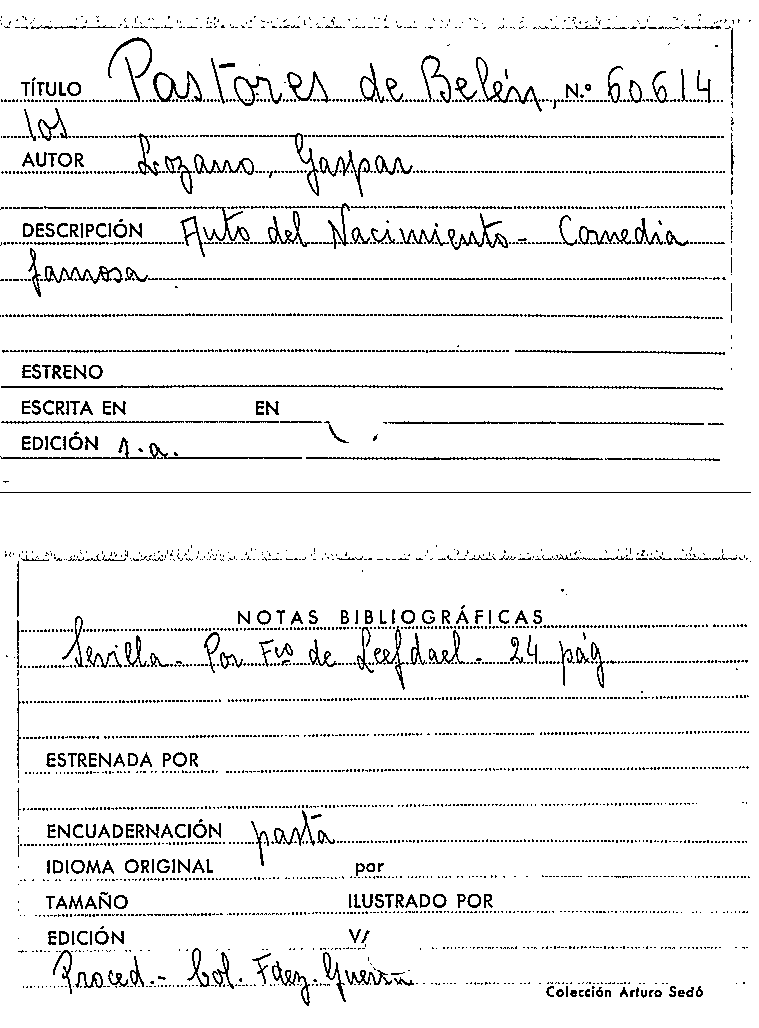 TÍTULO Pastores de Belén, N.º 60614
los
AUTOR Lozano, Gaspar
DESCRIPCIÓN Auto del Nacimiento - Comedia
famosa
ESTRENO
ESCRITA EN EN
EDICIÓN s.a.
NOTAS BIBLIOGRÁFICAS
Sevilla - Por Fco de Leefdael - 24 pág
ESTRENADA POR
ENCUADERNACIÓN pasta
IDIOMA ORIGINAL por
TAMAÑO ILUSTRADO POR
EDICIÓN V/
Proced.- Col. Fdez. Guerra
Colección Arturo Sedó